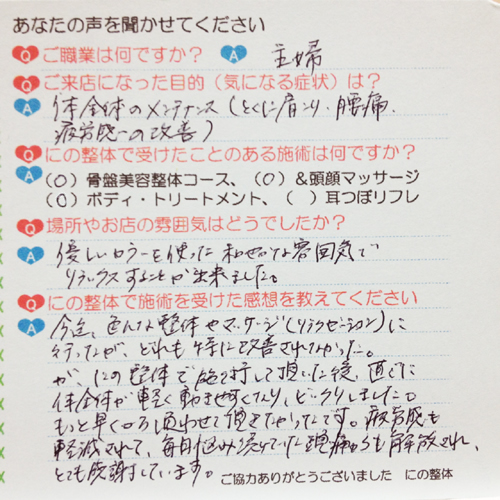 あなたの声を聞かせてください
Q ご職業は何ですか? A 主婦
Q ご来店になった目的（気になる症状）は?
A 体全体のメンテナンス（とくに肩こり、腰痛、
疲労感への改善）
Q にの整体で受けたことのある施術は何ですか?
A （○）骨盤美容整体コース、（○）&頭顔マッサージ
（○）ボディ・トリートメント、（ ）耳つぼリフレ
Q 場所やお店の雰囲気はどうでしたか?
A 優しいカラーを使った和やかな雰囲気で
リラックスすることが出来ました。
Q にの整体で施術を受けた感想を教えてください
A 今迄、色んな整体やマッサージ(リラクゼーション)に
行ったが、どれも特に改善されてなかった。
が、にの整体で施術して頂いた後、直ぐに
体全体が軽く動きやすくなり、ビックリしました。
もっと早くから通わせて頂きたかったです。疲労感も
軽減されて、毎日悩み続けていた頭痛からも解放され、
とても感謝しています。
ご協力ありがとうございました にの整体